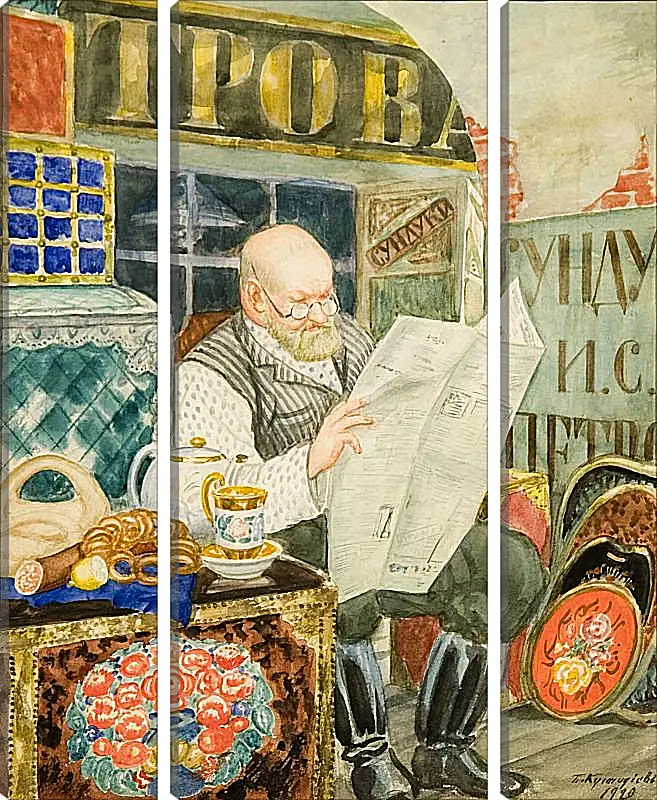 ТРОВА
СУНДУКИ
СУНДУ
И.С.
ПЕТРО
Б. Кустодіевъ
1920